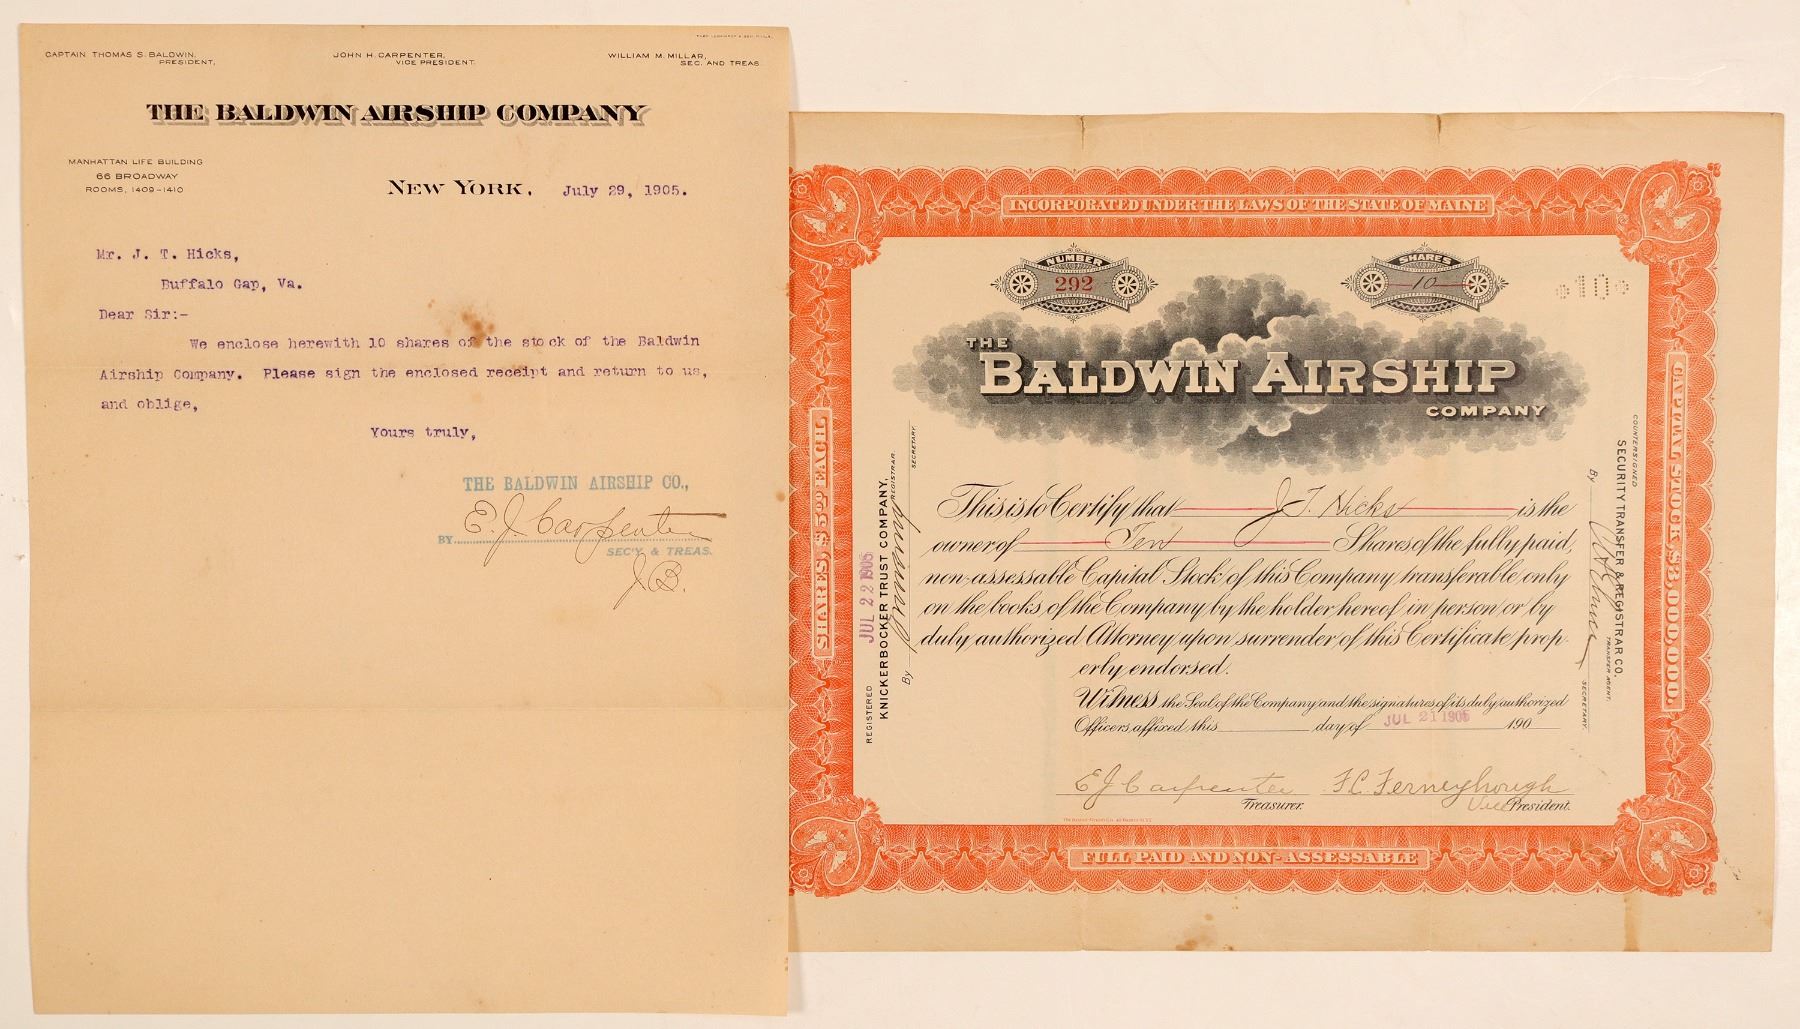 CAPTAIN THOMAS S. BALDWIN,
PRESIDENT,
JOHN H. CARPENTER,
VICE PRESIDENT.
WILLIAM M. MILLAR,
SEC. AND TREAS.
THE BALDWIN AIRSHIP COMPANY
MANHATTAN LIFE BUILDING
66 BROADWAY
ROOMS, 1409-1410
NEW YORK, July 29, 1905.
Mr. J. T. Hicks,
Buffalo Gap, Va.
Dear Sir:-
We enclose herewith 10 shares of the stock of the Baldwin
Airship Company. Please sign the enclosed receipt and return to us,
and oblige,
Yours truly,
THE BALDWIN AIRSHIP CO.,
BY E. J. Carpenter
SEC'Y. & TREAS.
J.B.
INCORPORATED UNDER THE LAWS OF THE STATE OF MAINE
NUMBER
292
SHARES
10
10
THE
BALDWIN AIRSHIP
COMPANY
This is to Certify that J. T. Hicks is the
owner of Ten Shares of the fully paid,
non-assessable Capital Stock of this Company transferable only
on the books of the Company by the holder hereof in person or by
duly authorized Attorney upon surrender of this Certificate prop-
erly endorsed.
Witness the Seal of the Company and the signatures of its duly authorized
Officers, affixed this day of JUL 21 1905 190
E J Carpenter
Treasurer.
F. C. Ferneyhough
Vice President.
FULL PAID AND NON-ASSESSABLE
SHARES, $5.00 EACH.
CAPITAL STOCK $3,000,000.
REGISTERED
JUL 22 1905
KNICKERBOCKER TRUST COMPANY,
REGISTRAR
By
SECRETARY.
COUNTERSIGNED
SECURITY TRANSFER & REGISTRAR CO.
TRANSFER AGENT.
By
SECRETARY.